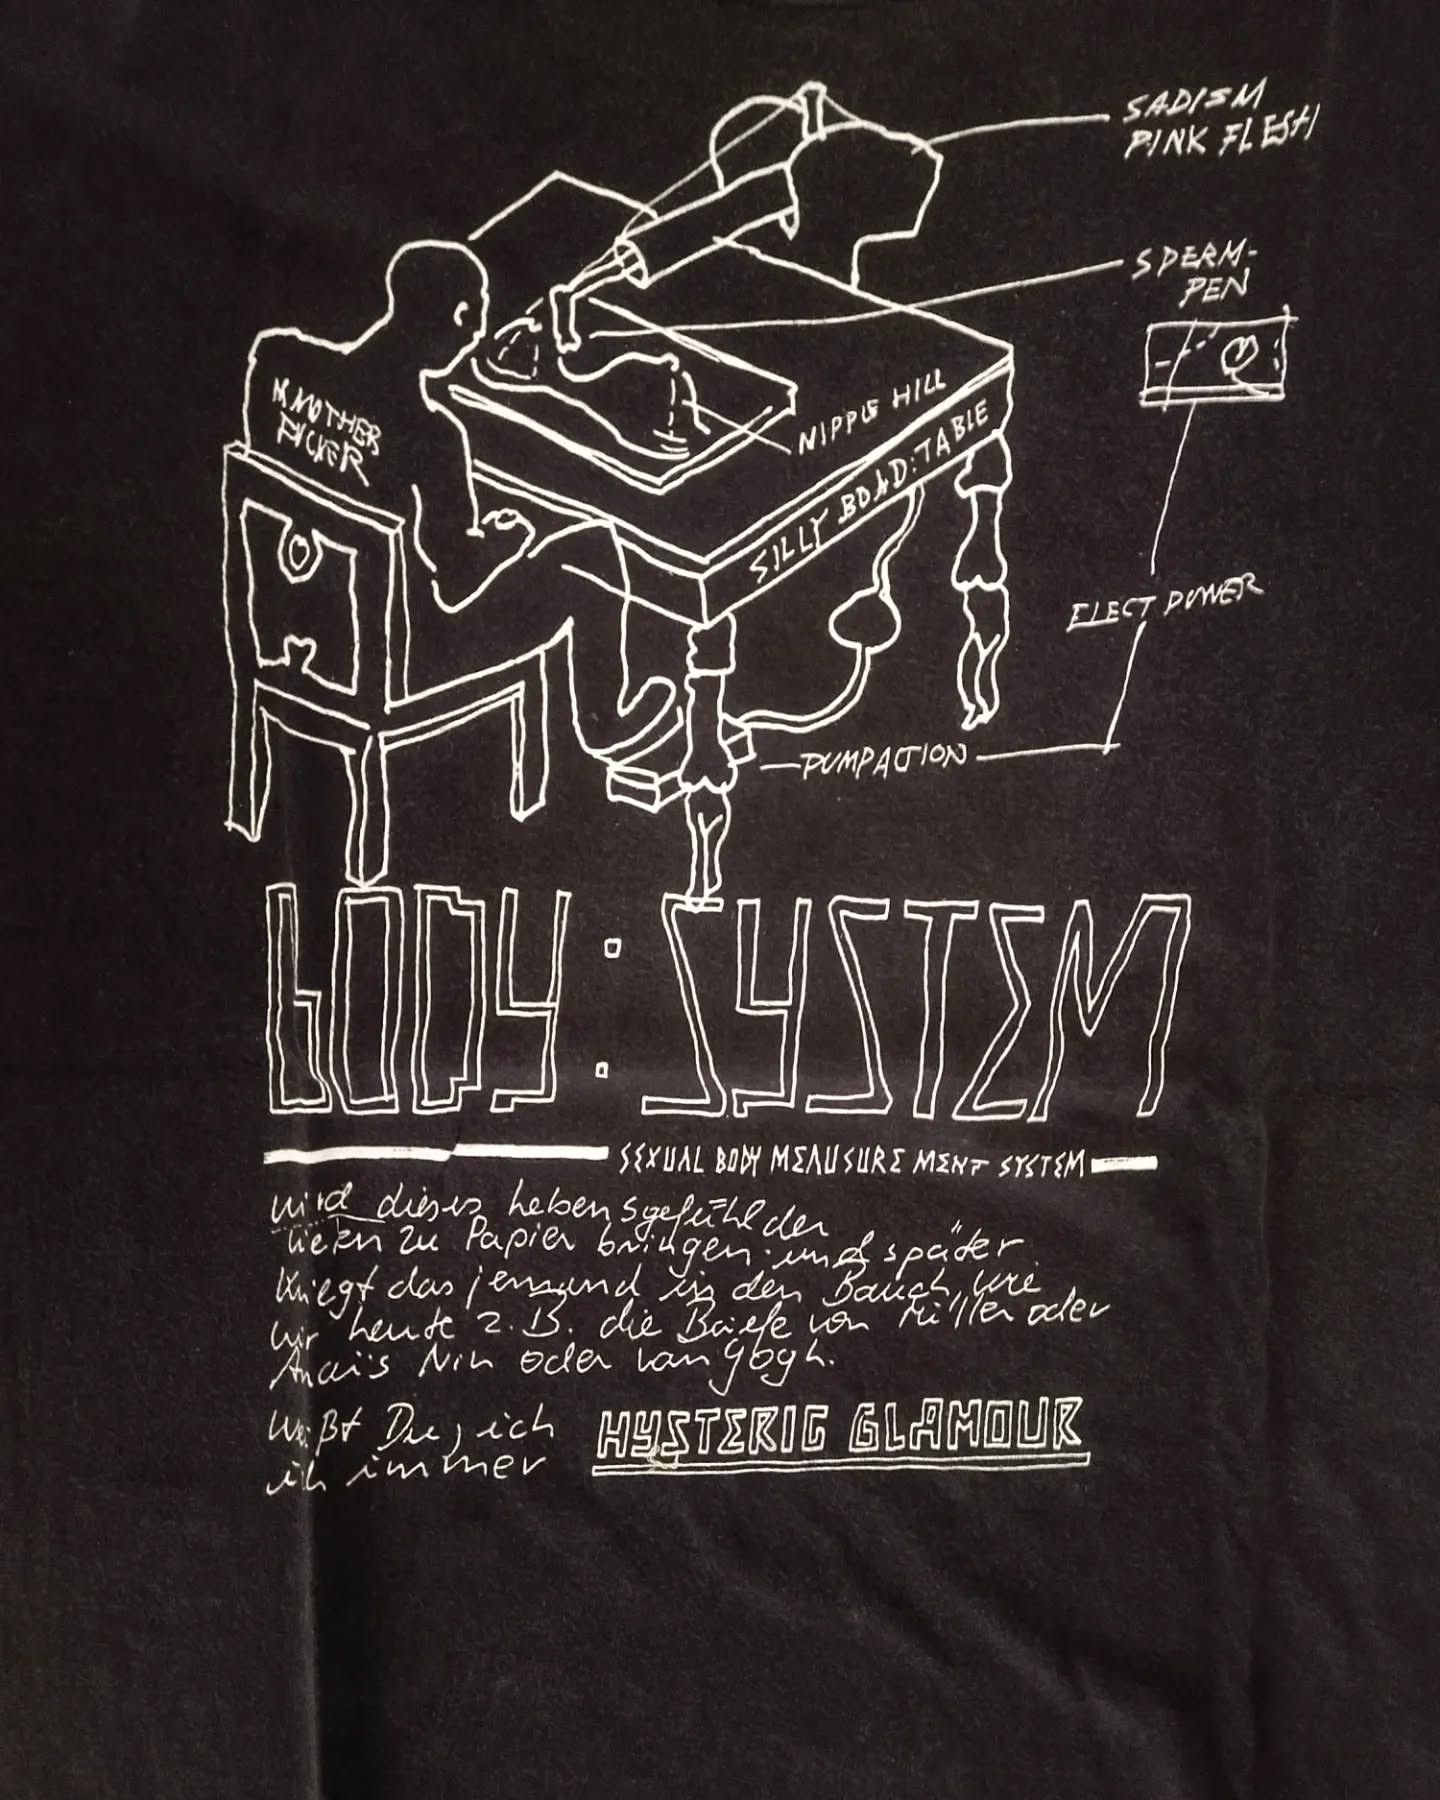 SADISM
PINK FLESH
SPERM-
PEN
MOTHER
FUCKER
NIPPLE HILL
SILLY BOAD:TABLE
ELECT POWER
PUMPACTION
BODY:SYSTEM
SEXUAL BODY MEAUSURE MENT SYSTEM
wird dieses Lebensgefühl der
zu Papier bringen und später
kriegt das jemand in den Bauch, wie
wir heute z.B. die Briefe von Miller oder
Anais Nin oder van Gogh.
Weißt Du, ich
ich immer
HYSTERIC GLAMOUR